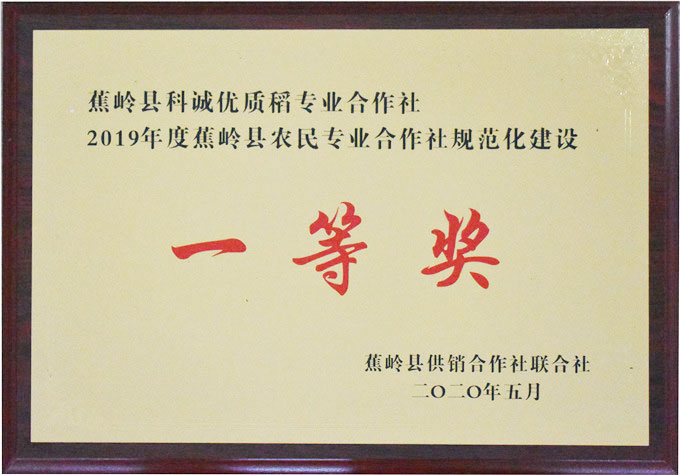 蕉岭县科诚优质稻专业合作社
2019年度蕉岭县农民专业合作社规范化建设
一等奖
蕉岭县供销合作社联合社
二〇二〇年五月